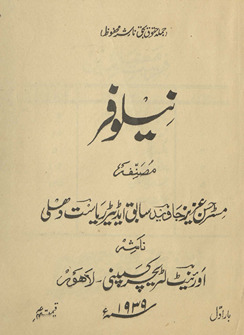 (جملہ حقوق بحق ناشر محفوظ)
نیلوفر
مصنفہ
مسٹر حسن عزیز جاوید سابق ایڈیٹر ریاست دھلی
ناشر
اورینٹ لٹریچر کمپنی - لاھور
۱۹۳۹ء
بار اول
قیمت